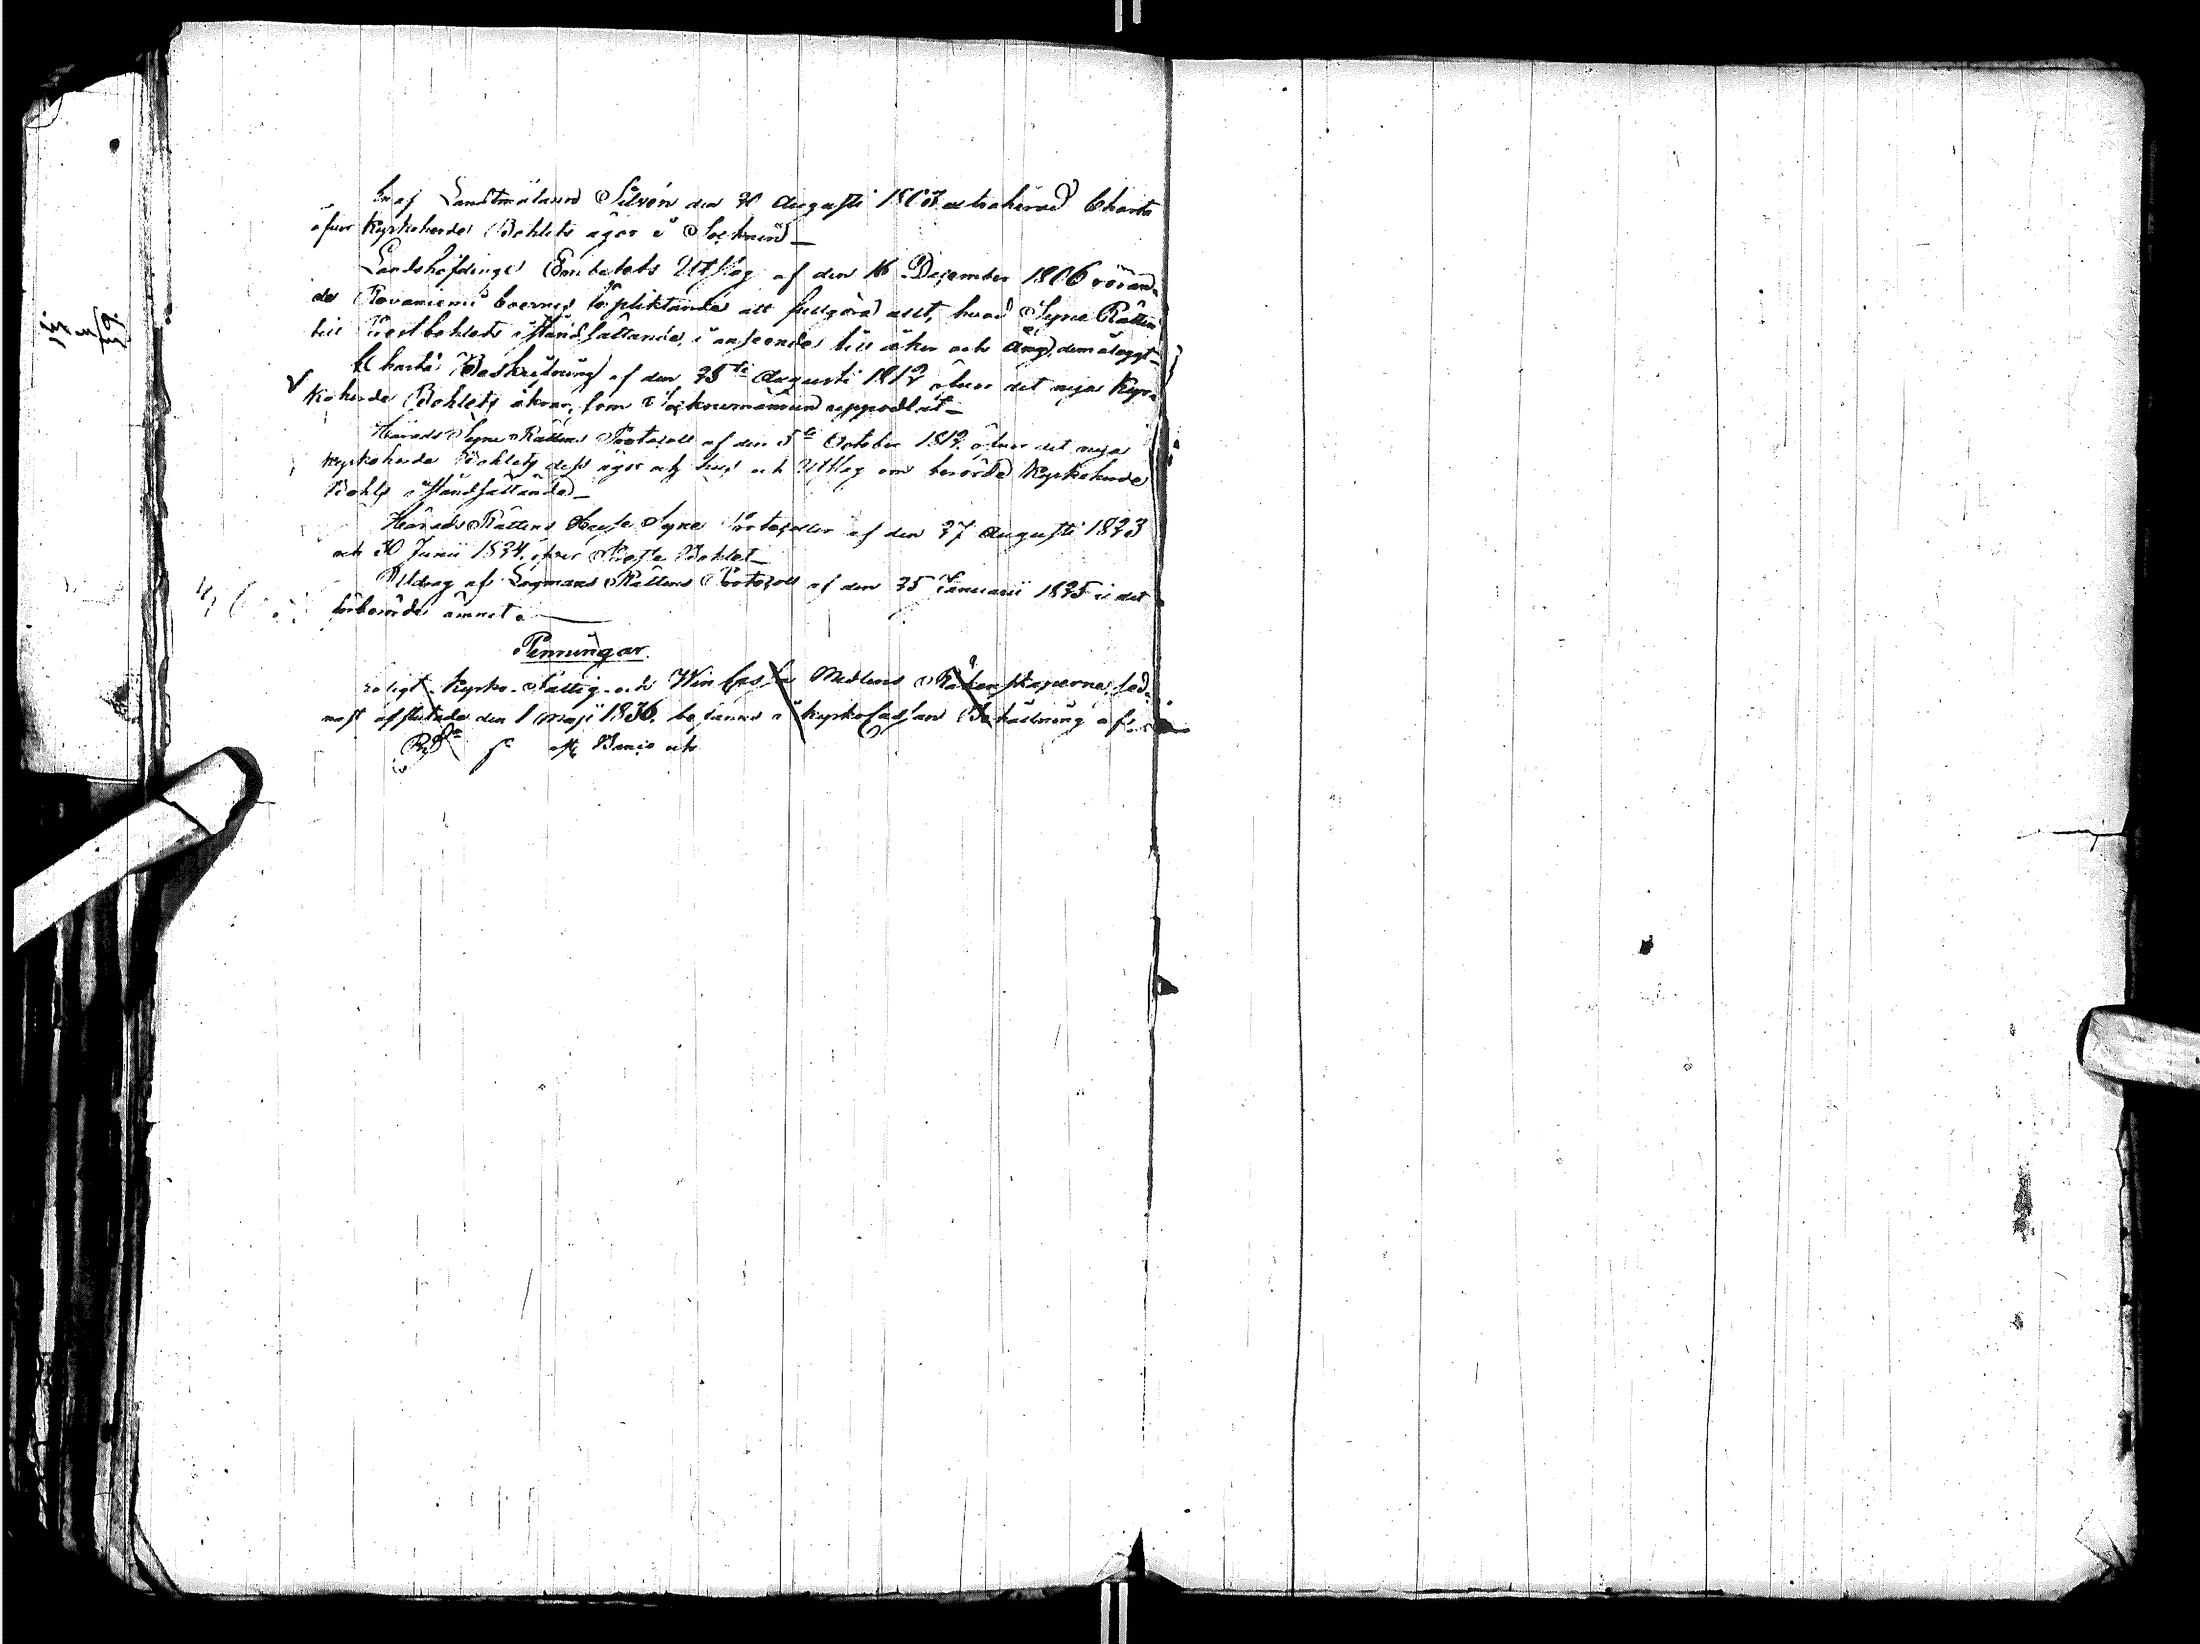 En af Landtmätaren Silvén den 30 Augusti 1803 extraherad Charta
öfver Kyrkoherde Bohlets ägor i Socknen
Landshöfdinge Embetets Utslag af den 16 December 1806 röran-
de Rovaniemi boernes förpliktande att fullgöra allt, hvad Syne Rätten
till Prest bohlets iståndsättande, i anseende till åker och äng, dem ålagt
Charta Beskrifning af den 25te Augusti 1812 öfver det nya Kyr-
koherde Bohlets åkrar, som Socknemännen uppodlat
Härads Syne Rättens Protocoll af den 5te October 1812 öfver det nya
Kyrkoherde Bohlets dess ägor och hus och Utslag om berörde Kyrkoherde
Bohls iståndsättande
Härads Rättens Huse Syne Protocoller af den 27 Augusti 1823
och 30 Junii 1824 öfver Prest Bohlet
Utdrag af Lagmans Rättens Protocoll af den 25 Januarii 1825 i det
förberörde ämnet.
Penningar.
Enligt Kyrko- Fattig- och Win Cassa Medlens Räkenskaperne, sed-
nast afslutade den 1 Maji 1836, befanns i Kyrko Cassan Behållning af
RD s. rst. Banco och